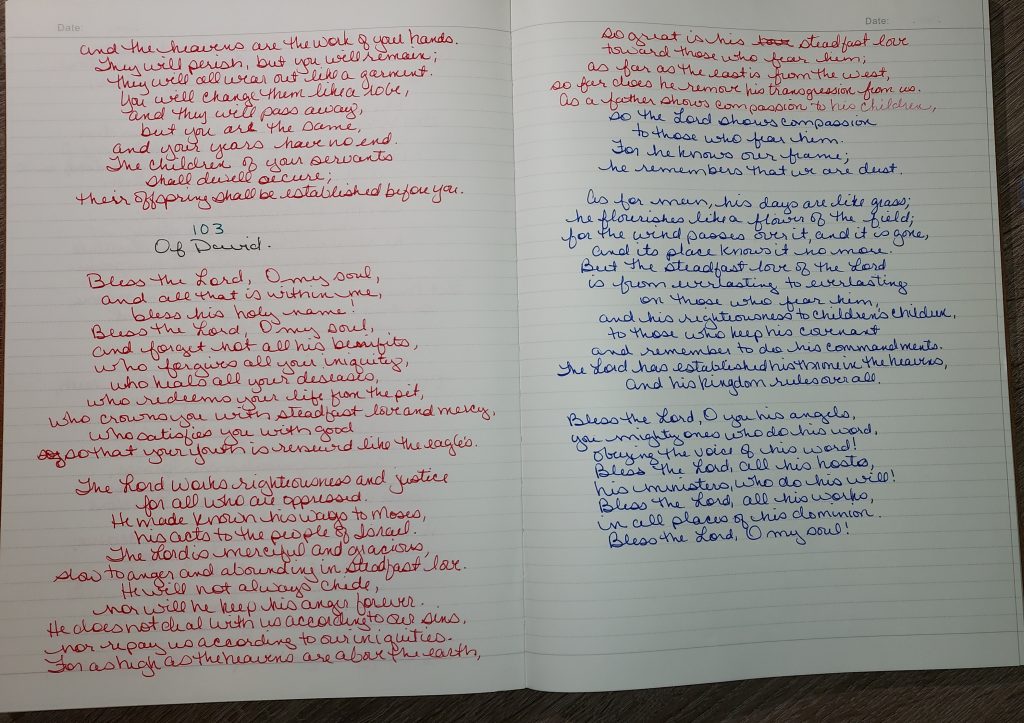 Date:
and the heavens are the work of your hands.
They will perish, but you will remain;
they will all wear out like a garment.
You will change them like a robe,
and they will pass away,
but you are the same,
and your years have no end.
The children of your servants
shall dwell secure;
their offspring shall be established before you.
103
Of David.
Bless the Lord, O my soul,
and all that is within me,
bless his holy name!
Bless the Lord, O my soul,
and forget not all his benefits,
who forgives all your iniquity,
who heals all your diseases,
who redeems your life from the pit,
who crowns you with steadfast love and mercy,
who satisfies you with good
so that your youth is renewed like the eagle's.
The Lord works righteousness and justice
for all who are oppressed.
He made known his ways to Moses,
his acts to the people of Israel.
The Lord is merciful and gracious,
slow to anger and abounding in steadfast love.
He will not always chide,
nor will he keep his anger forever.
He does not deal with us according to our sins,
nor repay us according to our iniquities.
For as high as the heavens are above the earth,
Date:
so great is his steadfast love
toward those who fear him;
as far as the east is from the west,
so far does he remove his transgression from us.
As a father shows compassion to his children,
so the Lord shows compassion
to those who fear him.
For he knows our frame;
he remembers that we are dust.
As for man, his days are like grass;
he flourishes like a flower of the field;
for the wind passes over it, and it is gone,
and its place knows it no more.
But the steadfast love of the Lord
is from everlasting to everlasting
on those who fear him,
and his righteousness to children's children,
to those who keep his covenant
and remember to do his commandments.
The Lord has established his throne in the heavens,
and his kingdom rules over all.
Bless the Lord, O you his angels,
you mighty ones who do his word,
obeying the voice of his word!
Bless the Lord, all his hosts,
his ministers, who do his will!
Bless the Lord, all his works,
in all places of his dominion.
Bless the Lord, O my soul!